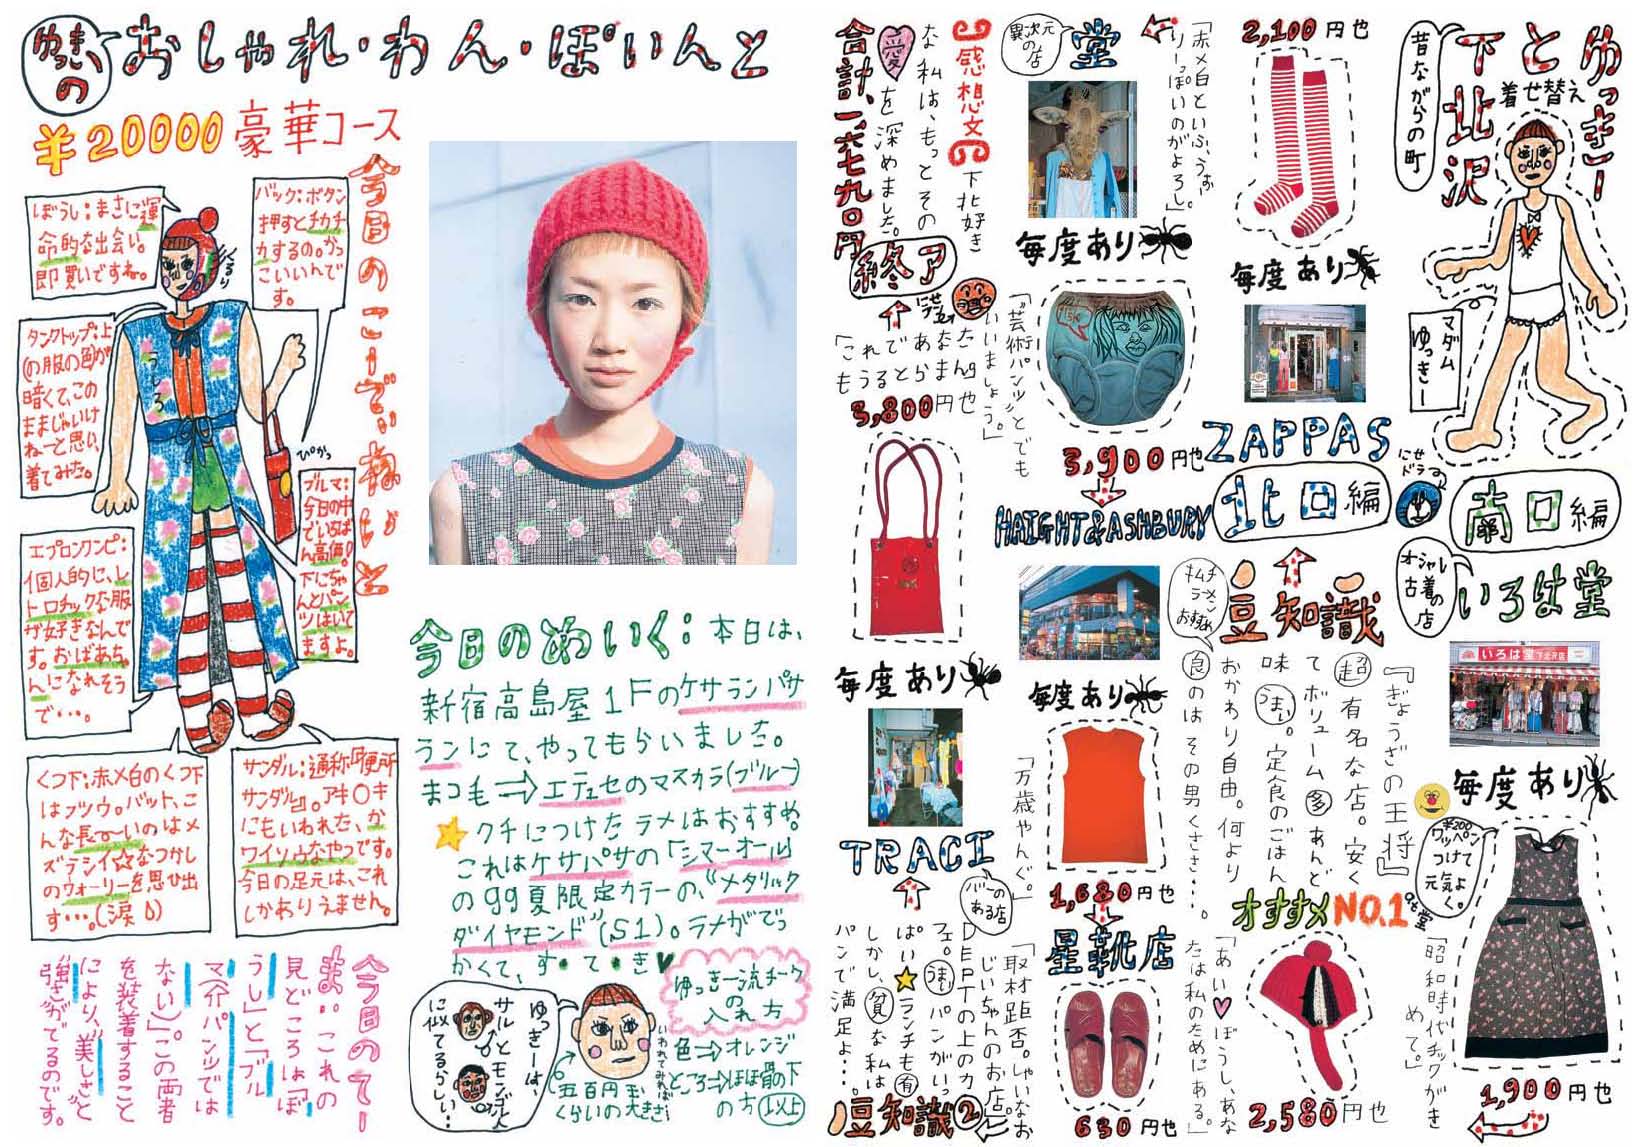 ゆっきぃの
おしゃれ・わん・ぽいんと
¥20000豪華コース
今日のこーでぃねいと
ぼうし:まさに運
命的な出会い。
即買いですね。
バック:ボタン
押すとチカチ
カするの。かっ
こいいんで
す。
くるり
うしろ
ぴかっ
タンクトップ:上
(の服の色)が
暗くて、この
ままじゃいけ
ねーと思い、
着てみた。
ブルマ:
今日の中
でいちば
ん高価!
下にちゃ
んとパン
ツはいて
ますよ。
エプロンワンピ:
個人的に、レ
トロチックな服
ザ好きなんで
す。おばあちゃ
んになれそう
で…。
くつ下:赤×白のくつ下
はフツウ。バット、こ
んな長〜いのはメ
ズラシイ☆なつかし
のウォーリーを思ひ出
す…。(涙)
サンダル:通称『便所
サンダル』。アキ〇キ
にもいわれた、か
ワイソウなやつです。
今日の足元は、これ
しかありえません。
今日のてーま:これの
見どころは「ぼ
うし」と「ブル
マ(介パンツでは
ない)」。この両者
を装着すること
により、"美しさ"と
"強さ"がでてるのです。
今日のめいく:本日は、
新宿高島屋1Fのケサランパサ
ランにて、やってもらいました。
まつ毛⇒エテュセのマスカラ(ブルー)
☆クチにつけたラメはおすすめ。
これはケサパサの「シマーオール」
の99夏限定カラーの、"メタリック
ダイヤモンド"(S1)。ラメがでっ
かくて、す・て・き♥
ゆっきーは、
サルとモンゴル人
に似てるらしい…
いわれてみれば…
五百円玉
くらいの大きさ
ゆっきー流チーク
の
入れ方
色⇒オレンジ
ところ⇒ほほ骨の下
の方以上
ゆっきーと
下北沢
着せ替え
昔ながらの町
マダム
ゆっきー
南口編
いろは堂
オシャレ
古着の
店
いろは堂 下北沢店
毎度あり
¥200
ワッペン
つけて
元気よ
く。
「昭和時代チックがき
めて。」
1,900円也
2,100円也
毎度あり
ZAPPAS
北口編
にせ
ドラ
豆知識
キムチ
ラーメン
おすすめ
『ぎょうざの王将』
超有名な店。安く
てボリューム多あんど
味うまい。定食のごはん
おかわり自由。何より
良のはその男くささ…。
オススメNO.1
「あい♥ぼうし、あな
たは私のためにある。」
2,580円也
「赤×白といふ、うお
りーっぽいのがよろし。」
異次元
の店
堂
毎度あり
"芸術パンツ"とでも
いいましょう。」
3,900円也
HAIGHT&ASHBURY
毎度あり
「万歳やんぐ。」
1,680円也
星靴店
「取材拒否。しゃいなお
じいちゃんのお店。」
630円也
感想文
下北好き
な私は、もっとその
愛を深めました。
合計、一六七九〇円
終了
にせ
ドラ
「これであなたん
もうるとらまん。」
3,800円也
毎度あり
TRACI
バーの
ある店
豆知識②
DEPTの上のカ
フェ。うまいパンがいっ
ぱい★ランチも有
しかし、貧な私は
パンで満足よ…。